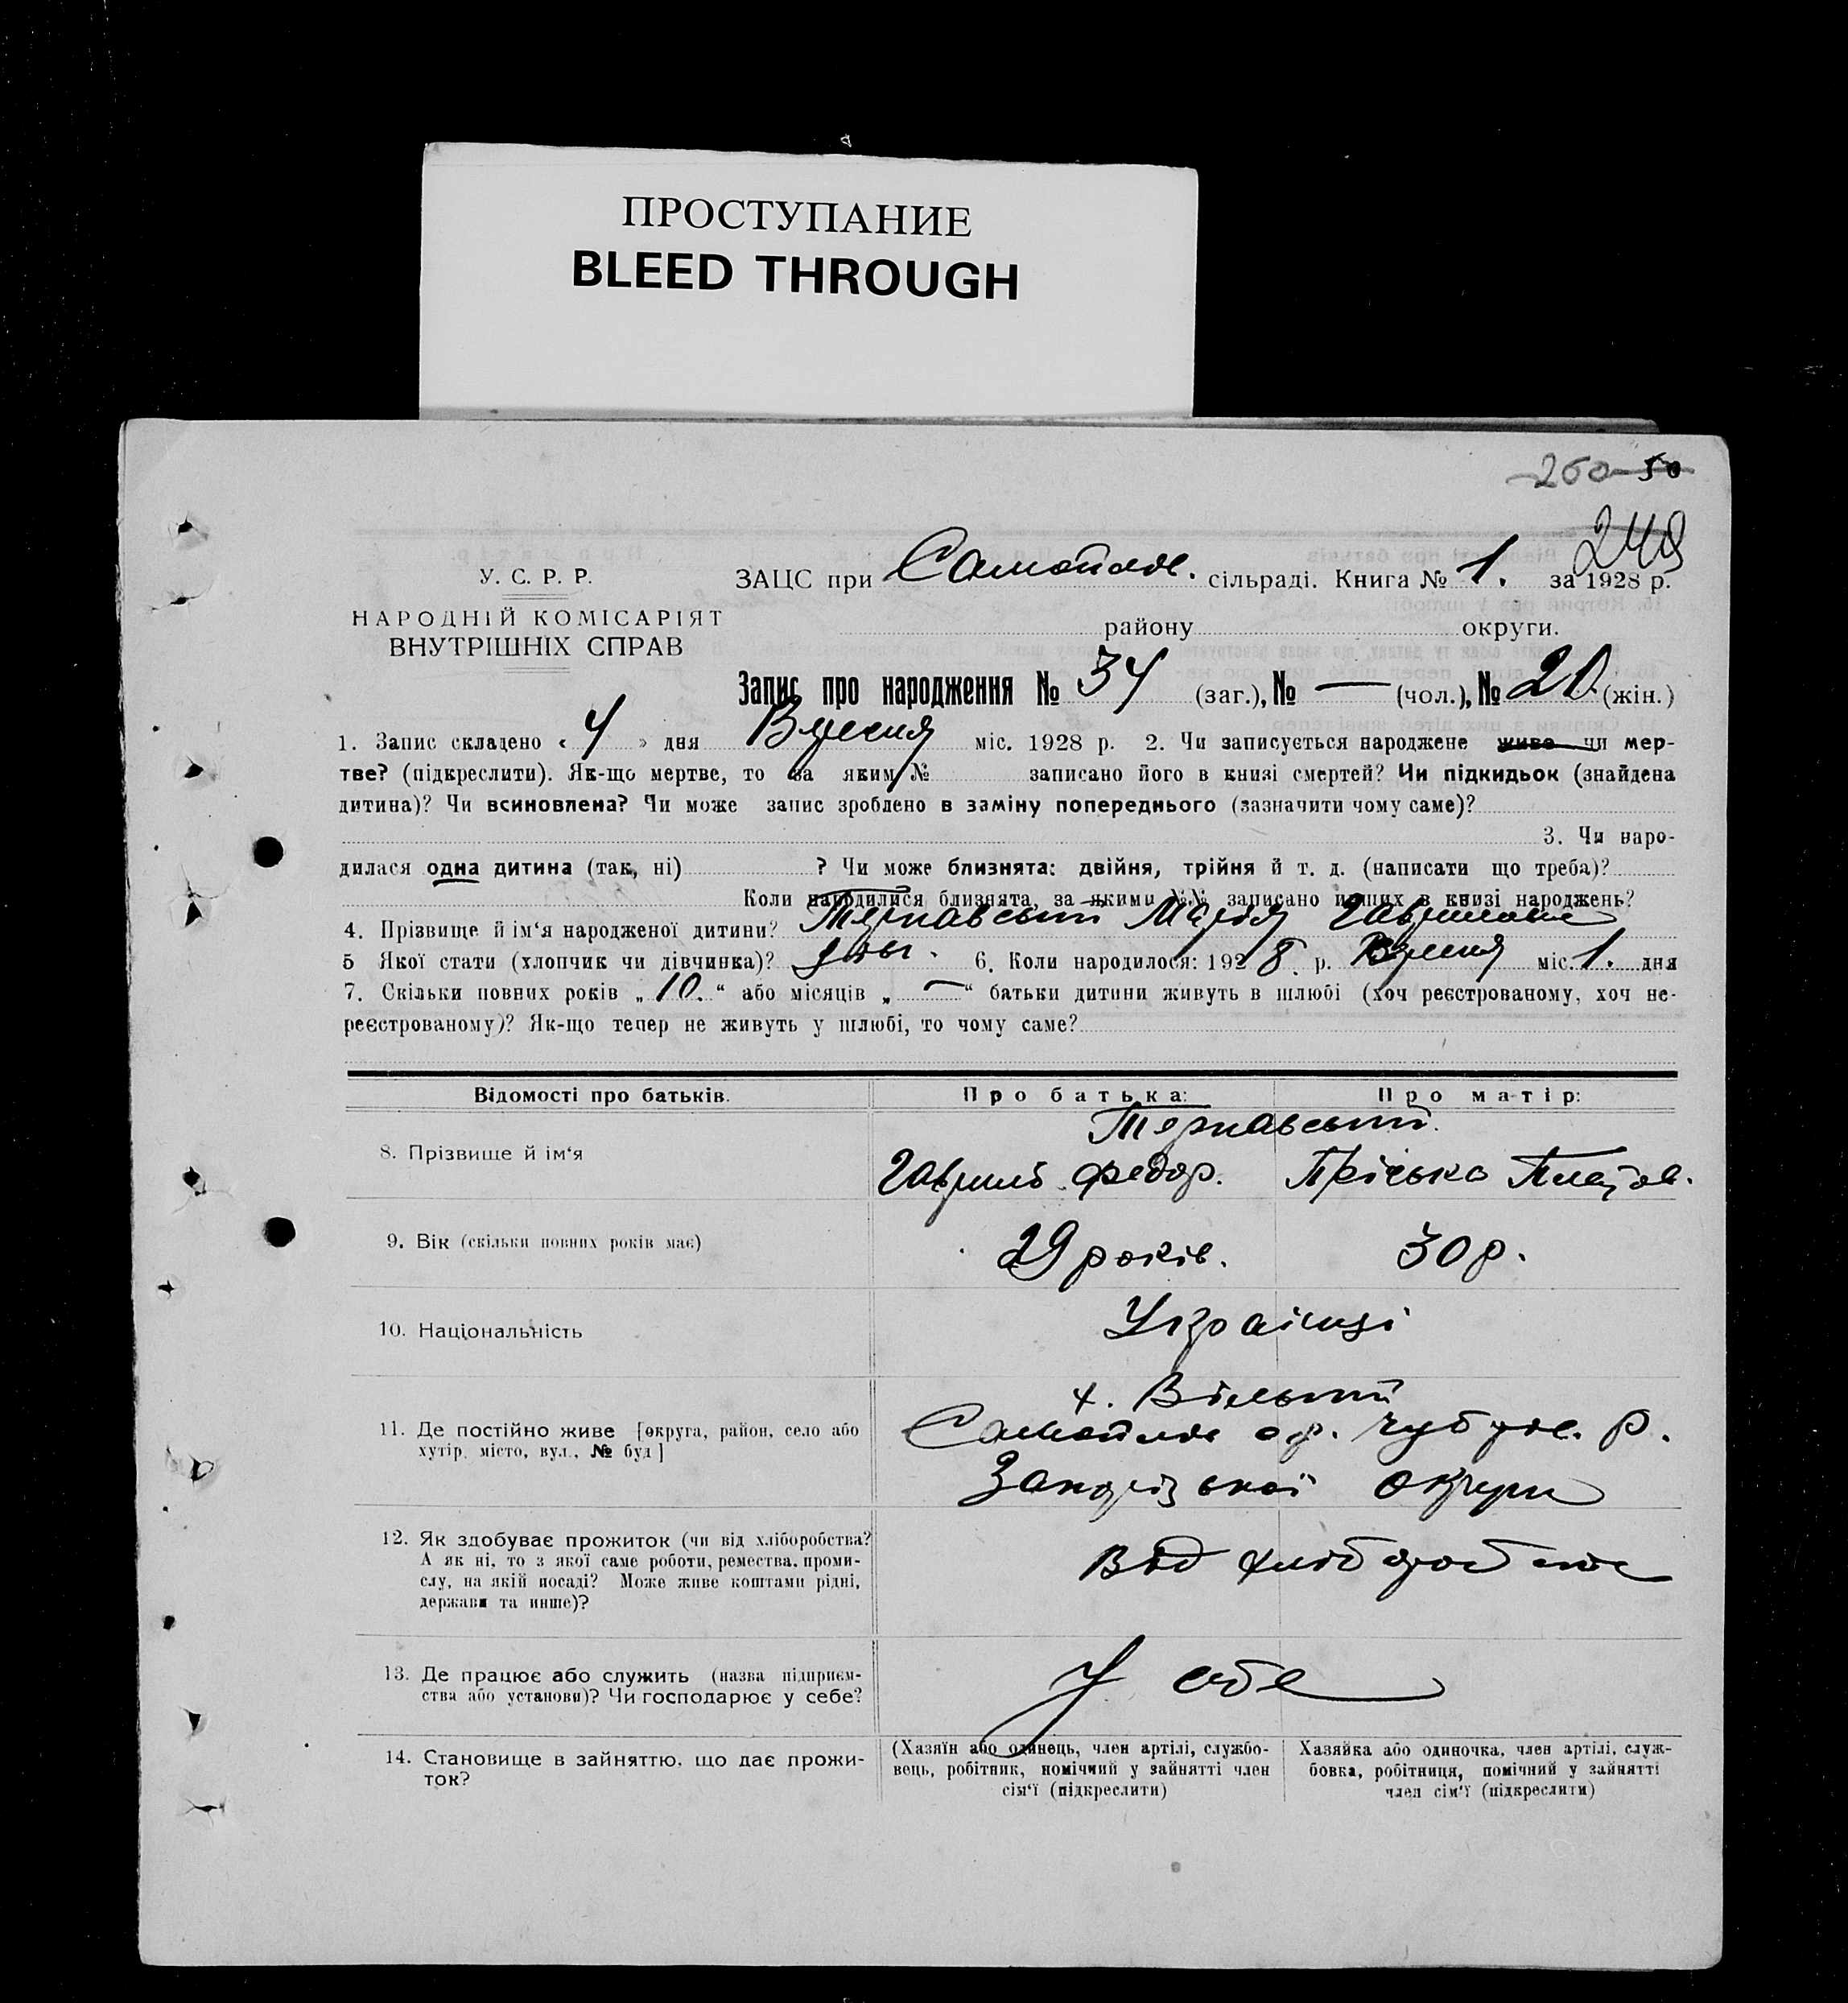 ПРОСТУПАНИЕ
BLEED THROUGH
260 50
248
У. С. Р. Р.
НАРОДНІЙ КОМІСАРІЯТ
ВНУТРІШНІХ СПРАВ
ЗАЦС при Самойлов. сільраді. Книга № 1. за 1928 р.
району округи.
Запис про народження № 34 (заг.), № — (чол.), № 20 (жін.)
1. Запис складено « 4 » дня Вересня міс. 1928 р. 2. Чи записується народжене живе чи мер-
тве? (підкреслити). Як-що мертве, то за яким № записано його в книзі смертей? Чи підкидьок (знайдена
дитина)? Чи всиновлена? Чи може запис зроблено в заміну попереднього (зазначити чому саме)?
3. Чи наро-
дилася одна дитина (так, ні) ? Чи може близнята: двійня, трійня й т. д. (написати що треба)?
Коли народилися близнята, за якими №№ записано инших в книзі народжень?
4. Прізвище й ім‘я народженої дитини? Тернавський Марія
5 Якої стати (хлопчик чи дівчинка)? 6. Коли народилося: 1928. р. Вересня міс. 1. дня
7. Скільки повних років „ 10. “ або місяців „ — “ батьки дитини живуть в шлюбі (хоч реєстрованому, хоч не-
реєстрованому)? Як-що тепер не живуть у шлюбі, то чому саме?
Відомості про батьків. Про батька: Про матір:
Тернавський.
8. Прізвище й ім‘я Гаврило Федор. Пріська Платов.
9. Вік (скільки повних років має) 29 років. 30 р.
10. Національність Українці
х. Вільний
11. Де постійно живе [округа, район, село або Самойлов с.р. Чубрів. р.
хутір, місто, вул., № буд] Запорізької округи
12. Як здобуває прожиток (чи від хліборобства? Від хліборобства
А як ні, то з якої саме роботи, ремества, проми-
слу, на якій посаді? Може живе коштами рідні,
держави та инше)?
13. Де працює або служить (назва підприєм- У себе
ства або установи)? Чи господарює у себе?
14. Становище в зайняттю, що дає прожи-
ток?
(Хазяїн або одинець, член артілі, службо-
вець, робітник, помічний у зайнятті член
сім‘ї (підкреслити)
Хазяйка або одиночка, член артілі, служ-
бовка, робітниця, помічний у зайнятті
член сім‘ї (підкреслити)